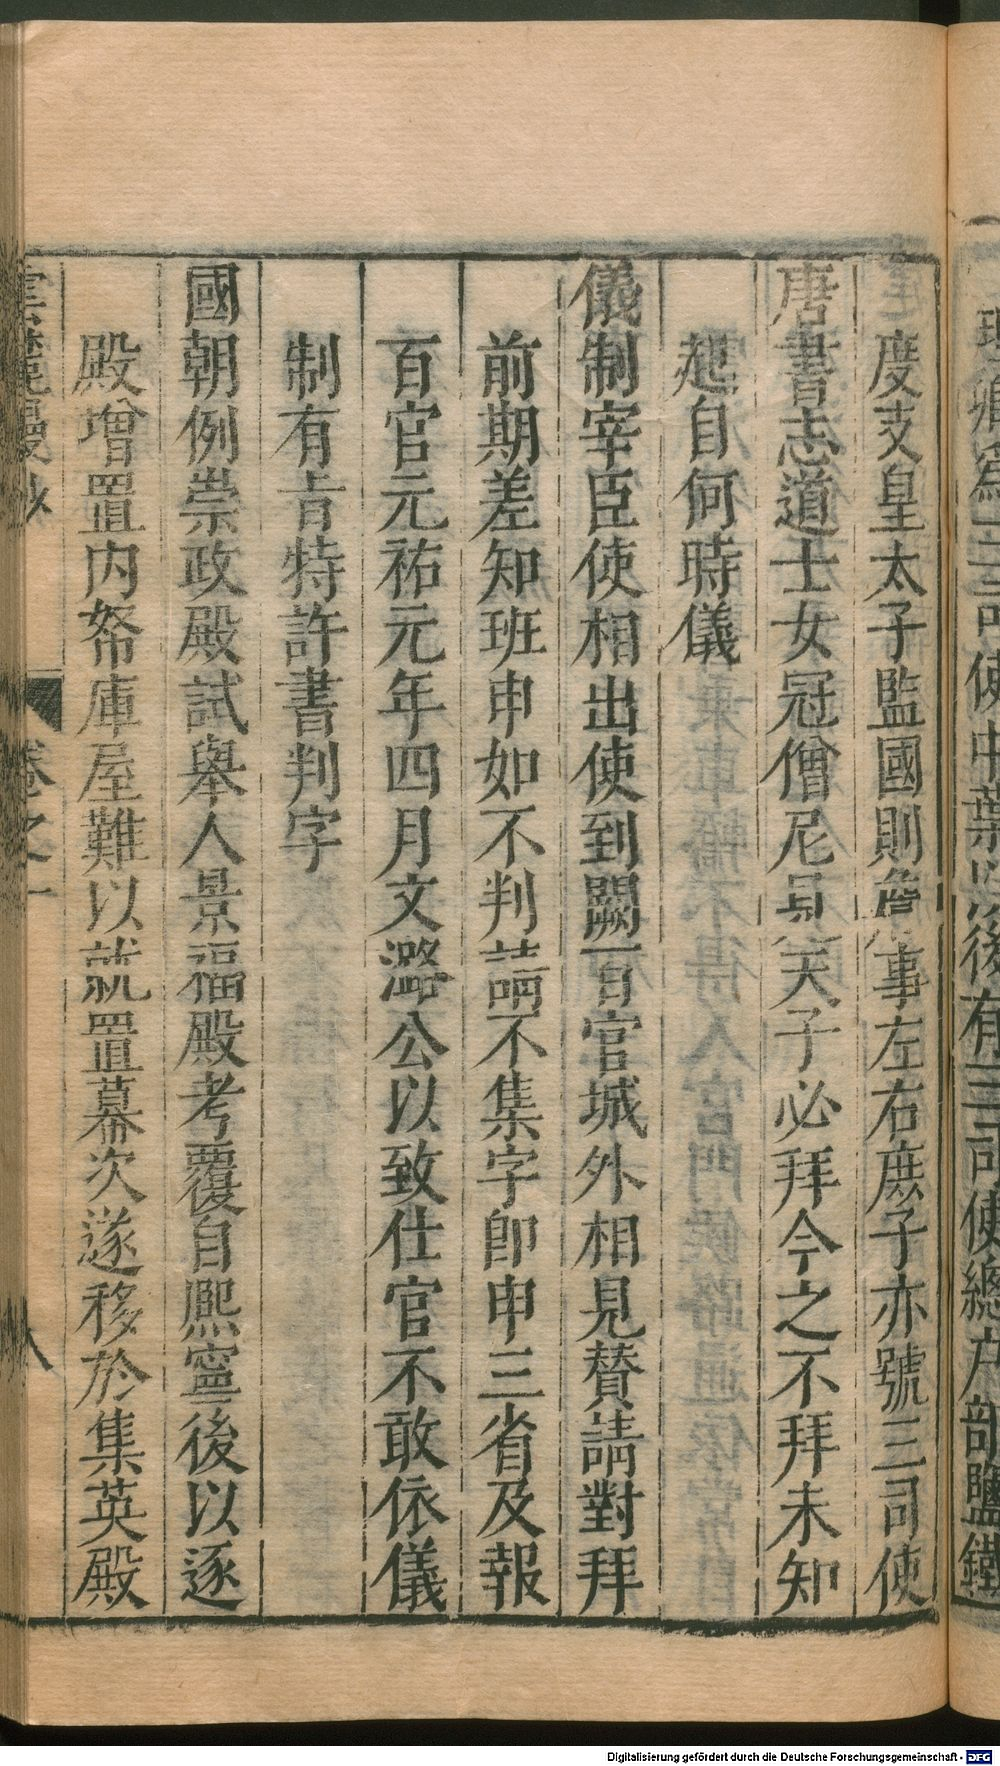 使中葉以後有三司使總戶部鹽鐵
度支皇太子監國則詹事左右庶子亦號三司使
唐書志道士女冠僧尼見天子必拜今之不拜未知
起自何時儀
儀制宰臣使相出使到闕百官城外相見贊請對拜
前期差知班申如不判請不集字卽申三省及報
百官元祐元年四月文潞公以致仕官不敢依儀
制有旨特許書判字
國朝例崇政殿試舉人景福殿考覆自熈寧後以逐
殿增置內帑庫屋難以就置幕次遂移於集英殿
雲麓漫抄 卷之一 八
Digitalisierung gefördert durch die Deutsche Forschungsgemeinschaft - DFG